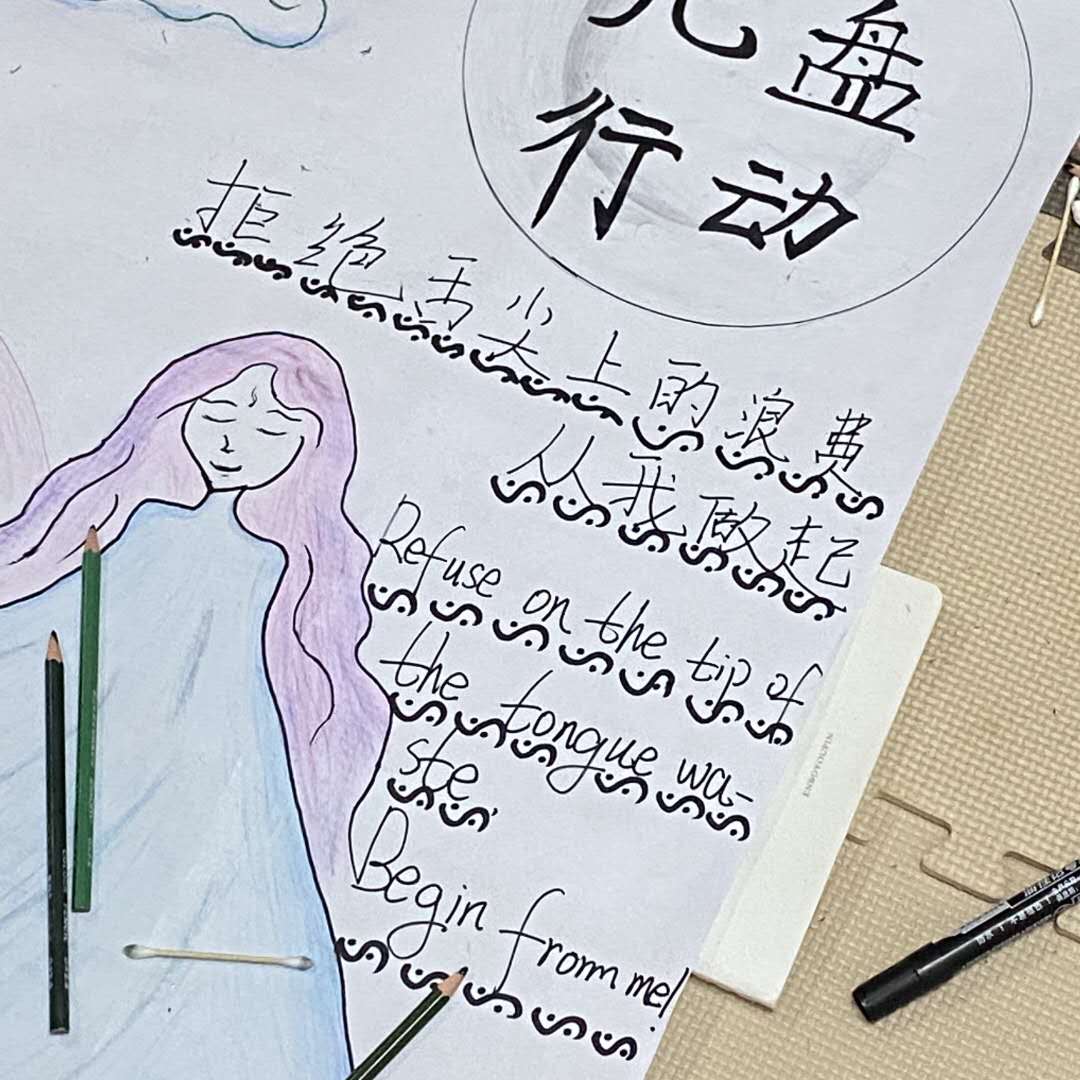 光盘
行动
拒绝舌尖上的浪费
从我做起
Refuse on the tip of
the tongue wa-
ste,
Begin from me!